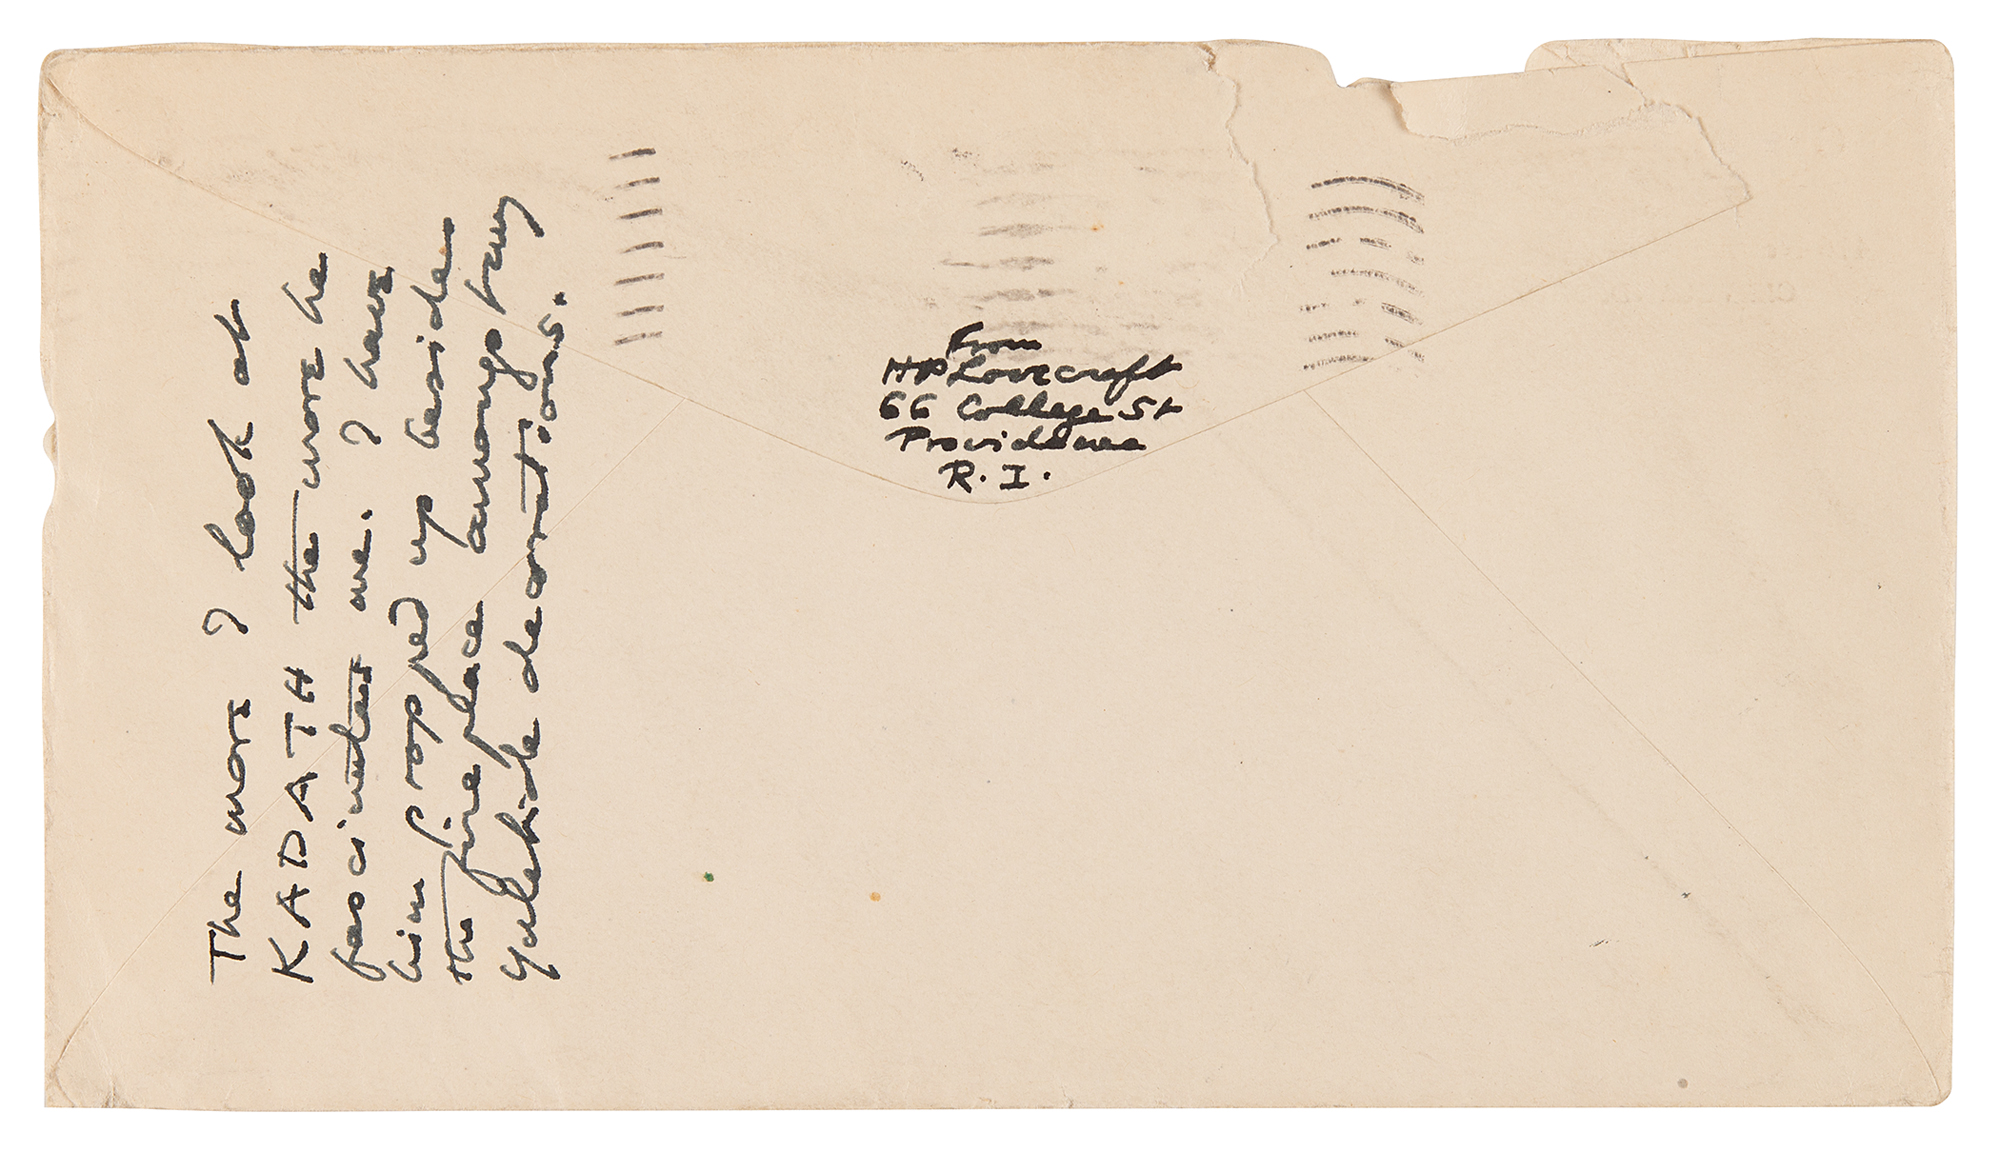 The more I look at
KADATH the more he
fascinates me. I have
him propped up beside
the fireplace amongst my
yuletide decorations.
From
HP Lovecraft
66 College St
Providence
R. I.